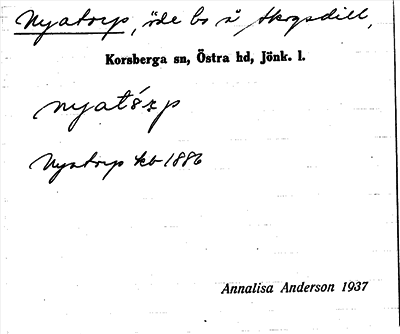 Nyatorp, öde bs å Skogsdill,
Korsberga sn, Östra hd, Jönk. l.
nyatórp
Nyatorp kb 1886
Annalisa Anderson 1937